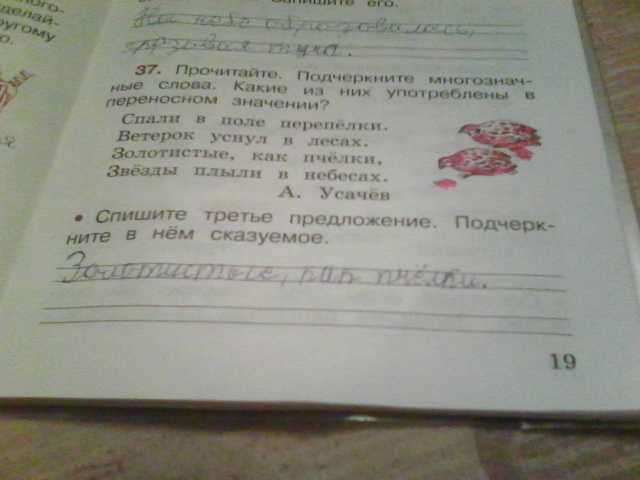 ного-
делай-
другому
о.
Запишите его.
На небе образовалась
грозовая туча.
37. Прочитайте. Подчеркните многознач-
ные слова. Какие из них употреблены в
переносном значении?
Спали в поле перепёлки.
Ветерок уснул в лесах.
Золотистые, как пчёлки,
Звёзды плыли в небесах.
А. Усачёв
• Спишите третье предложение. Подчерк-
ните в нём сказуемое.
Золотистые, как пчёлки.
19